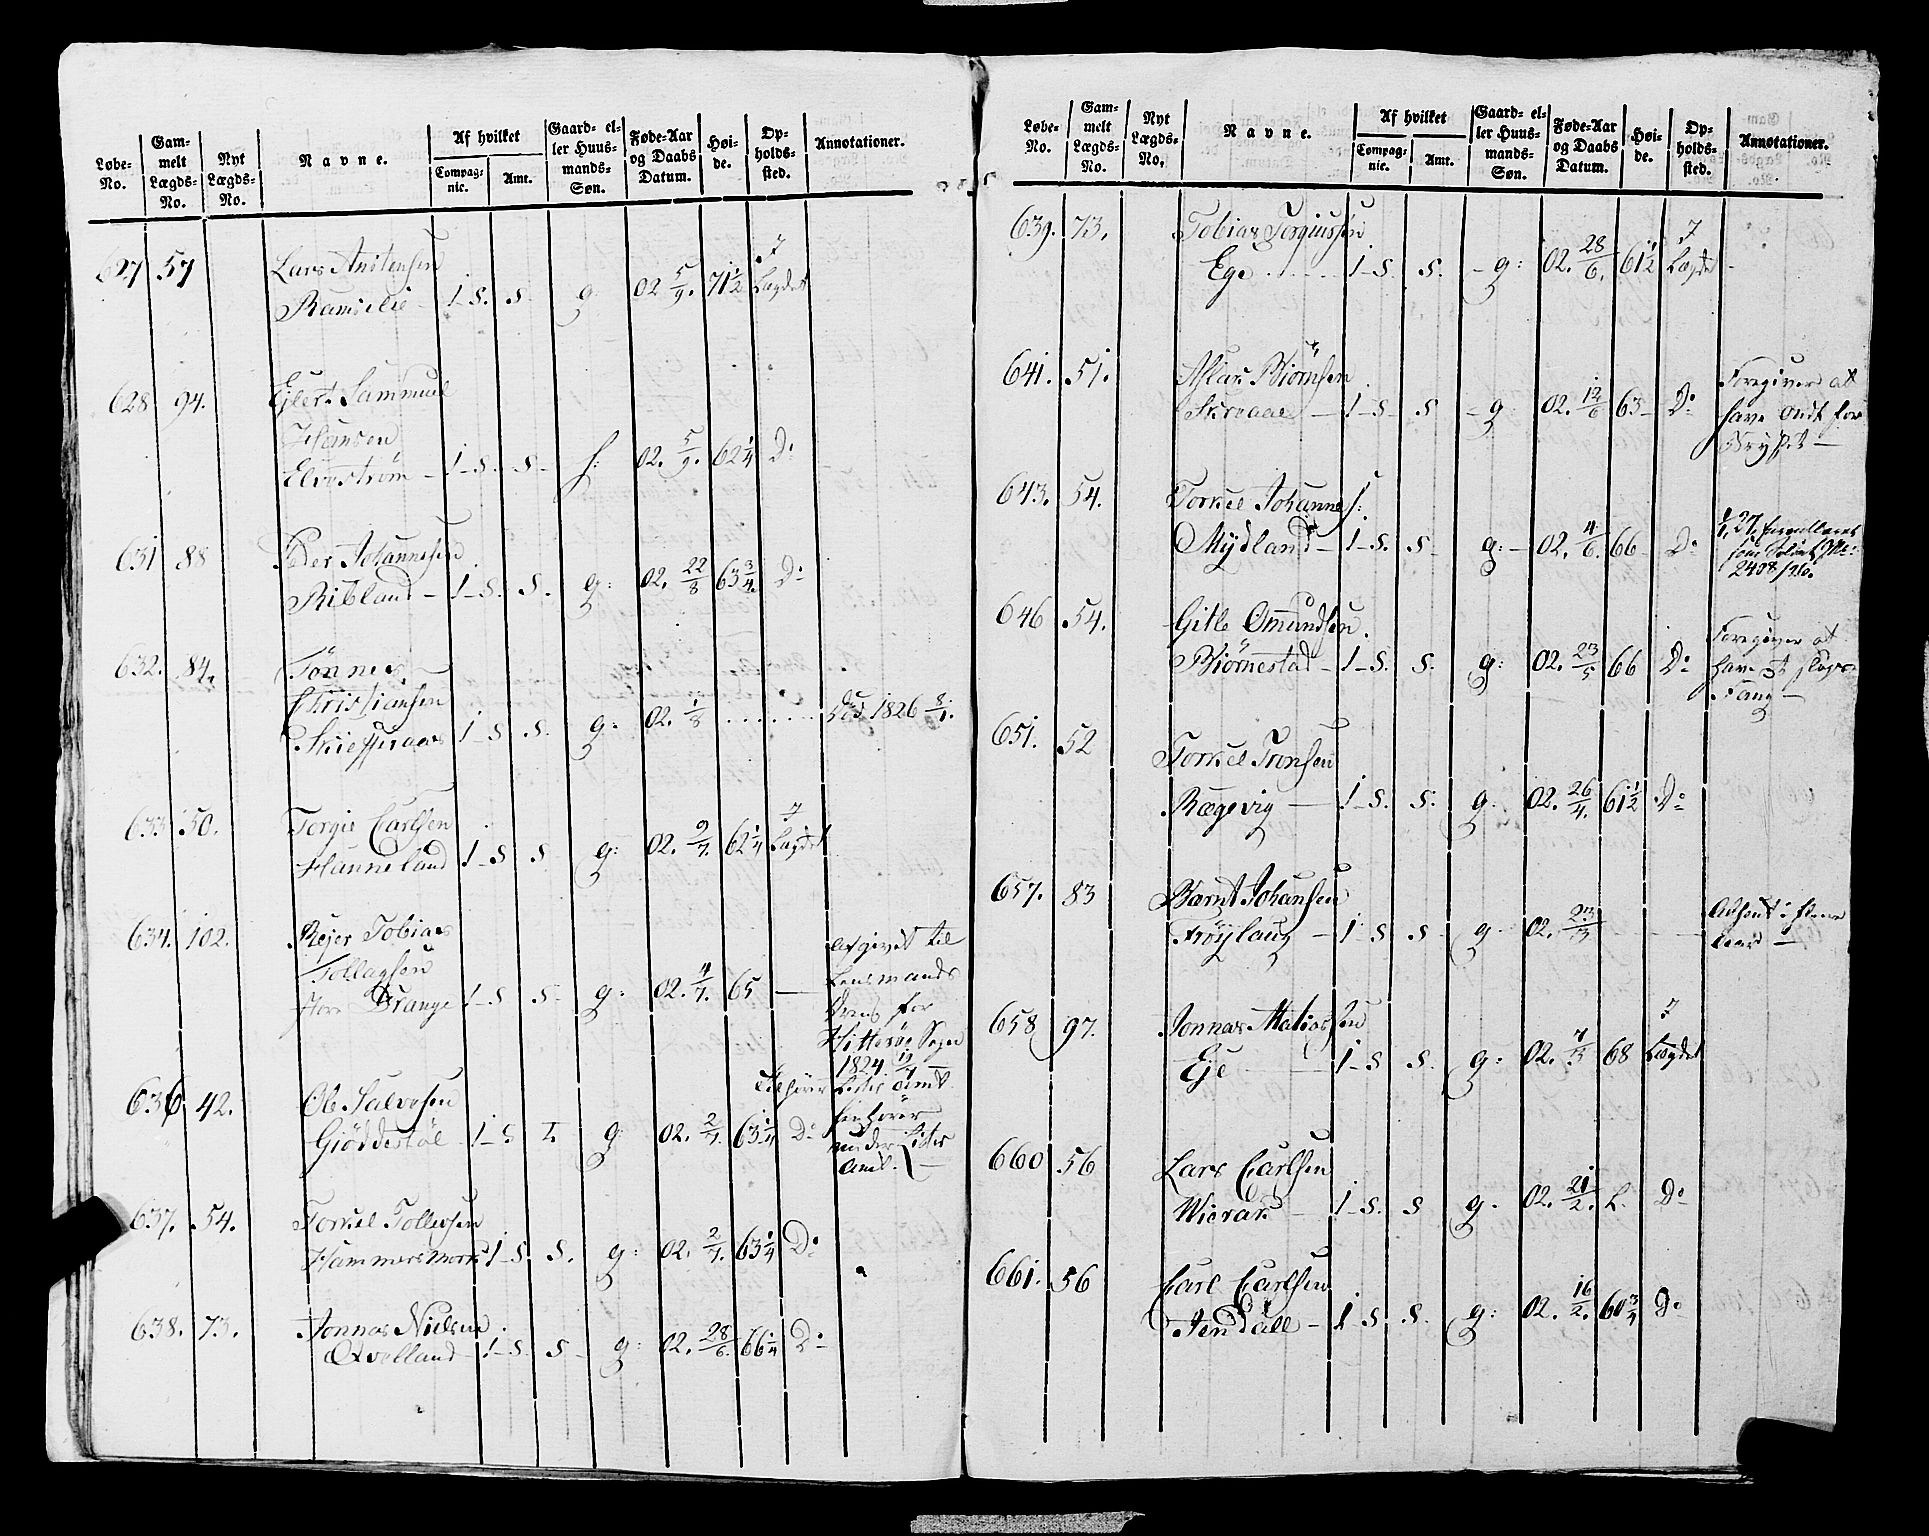 Løbe-No. Gammelt Lægds-No. Nyt Lægds-No. Navne. Af hvilket Compagnie. Amt. Gaard- eller Huusmands-Søn. Føde-Aar og Daabs Datum. Høide. Opholdssted. Annotationer.
627 57 Lars Anstensen
Ramslie 1 S. S g 02 5/9. 71 1/2 I Lægdet
628 94. Ejlert Sammuel
Johansen
Elvestrøm 1 S. S f: 02. 5/9. 62 1/4 Do
631 88 Peder Johannesen
Ribland 1 S. S. g: 02. 22/8 63 3/4 Do
632. 84. Tönnes
Christiansen
1 S S. g: 02. 1/8 död 1826 8/1.
633 50. Torgie Carlsen
Hanneland 1 S S g: 02. 9/7. 62 1/4 I Lægdet
634. 102. Rejer Tobias
Tollagsen
Store Drange 1 S S g: 02. 4/7. 65
afgivet til
Lensmands
Dreng for
Hitterøe Sogn
1824
Tilhører Lister Amt
636 42. Ole Salvesen
Giöddestöl 1 S g 02. 2/7. 63 1/4 Do
henhører
under Lister
Amt.
637. 54. Torkel Tollevsen
Hammersmark 1 S. S. g: 02. 2/7. 63 1/4 Do
638. 73. Jonnas Nielsen
Qvelland 1 S. S g: 02. 28/6. 66 1/4 Do
Løbe-No. Gammelt Lægds-No. Nyt Lægds-No, Navne. Af hvilket Compagnie. Amt. Gaard- eller Huusmands-Søn. Føde-Aar og Daabs Datum. Høide. Opholdssted. Annotationer.
639. 73. Tobias Torgiussen
Ege 1 S. S. g: 02. 28/6. 61 1/2 I Lægdet
641. 51. Aslak Biörnsen
1 S. S g 02. 12/6 63 Do
Foregiver at
have ondt for
Brystet
643. 54. Torkel Johannes:
Mydland 1 S. S. g: 02. 4/6. 66 Do
1/1 27
som Soldat
2408
646 54. Gitle Omundsen
Biörnestad 1 S. S. g: 02. 23/5 66 Do
Foregiver at
have et
651. 52 Torkel Tronsen
Rægevig 1 S. S. g. 02. 26/4. 61 1/2 Do
657. 83 Barnt Johansen
Frøÿlaug 1 S S g. 02. 23/3
Absent i flere
Aar
658 97. Jonnas Matiassen
Eje 1 S S. g: 02. 7/3 68 I Lægdet
660 56 Lars Carlsen
Wierak 1 S. S g. 02. 21/2. L. Do
661. 56 Carl Carlsen
Jendall 1 S. S. g: 02. 16/2. 60 3/4 Do